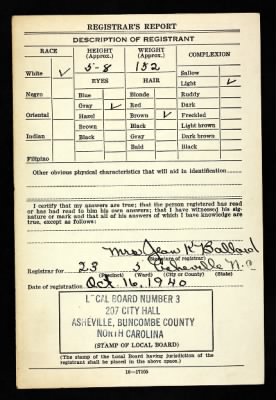 REGISTRAR'S REPORT
DESCRIPTION OF REGISTRANT
RACE HEIGHT (Approx.) WEIGHT (Approx.) COMPLEXION
White ✓ 5-8 152 Sallow
EYES HAIR Light ✓
Negro Blue Blonde Ruddy
Gray ✓ Red Dark
Oriental Hazel Brown ✓ Freckled
Brown Black Light brown
Indian Black Gray Dark brown
Bald Black
Filipino
Other obvious physical characteristics that will aid in identification
I certify that my answers are true; that the person registered has read
or has had read to him his own answers; that I have witnessed his sig-
nature or mark and that all of his answers of which I have knowledge are
true, except as follows:
Mrs. Jean K Ballard
(Signature of registrar)
Registrar for 23 5 Asheville N.C
(Precinct) (Ward) (City or County) (State)
Date of registration Oct. 16, 1940
LOCAL BOARD NUMBER 3
207 CITY HALL
ASHEVILLE, BUNCOMBE COUNTY
NORTH CAROLINA
(STAMP OF LOCAL BOARD)
(The stamp of the Local Board having jurisdiction of the registrant
shall be placed in the above space.)
16—17105